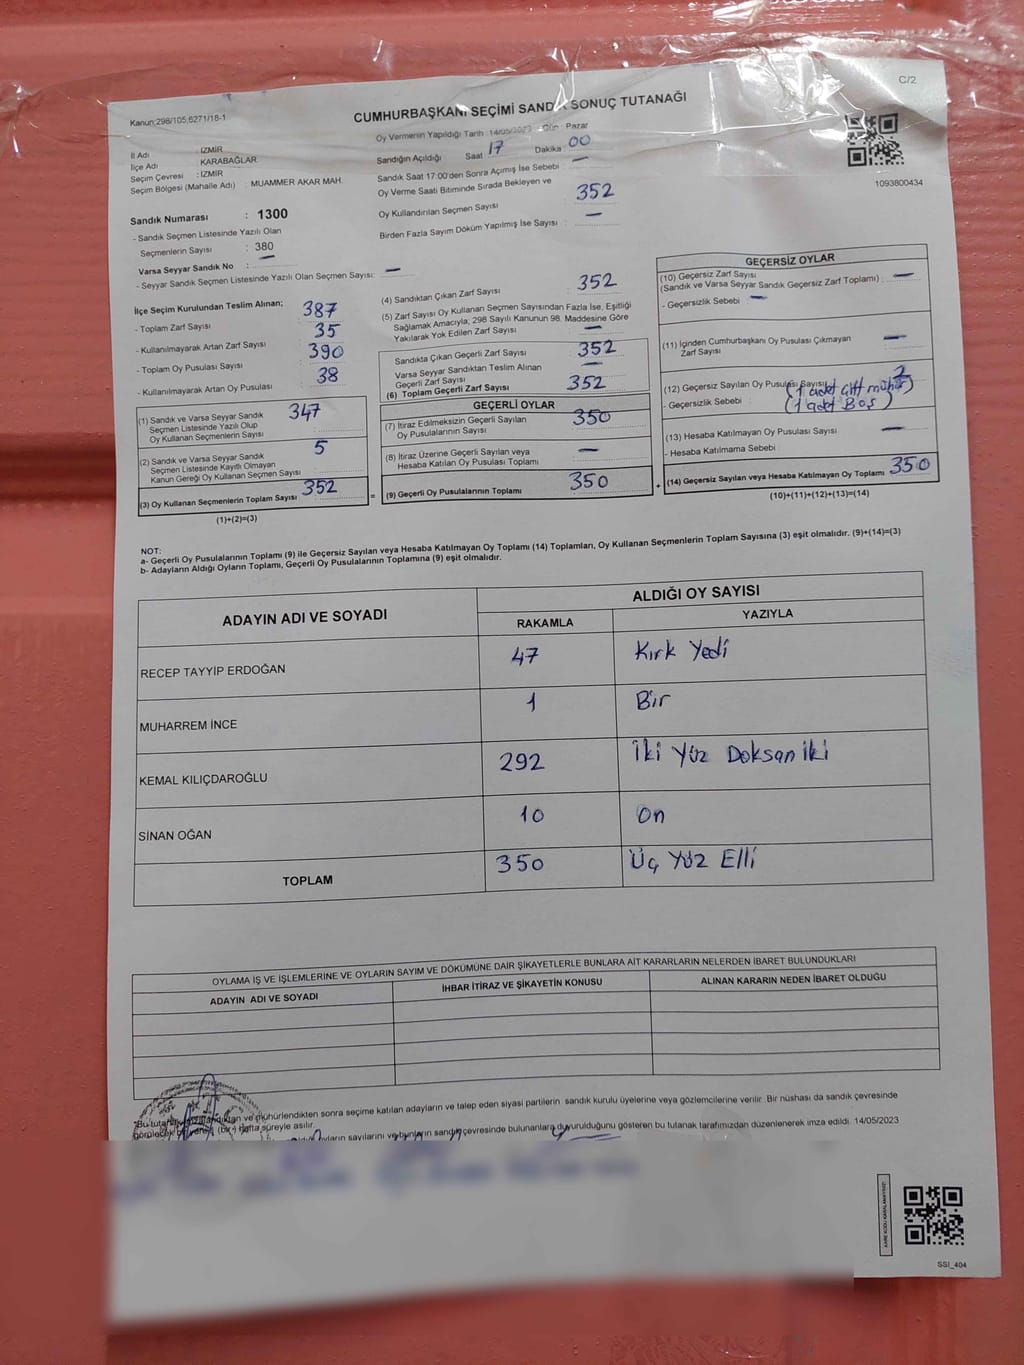 C/2
Kanun;298/105,6271/18-1
CUMHURBAŞKANI SEÇİMİ SANDIK SONUÇ TUTANAĞI
İl Adı : İZMİR
İlçe Adı : KARABAĞLAR
Seçim Çevresi : İZMİR
Seçim Bölgesi (Mahalle Adı) : MUAMMER AKAR MAH.
Oy Vermenin Yapıldığı Tarih : 14/05/2023 Gün : Pazar
Sandığın Açıldığı Saat 17 Dakika 00
Sandık Saat 17:00'den Sonra Açmış İse Sebebi : —
Oy Verme Saati Bitiminde Sırada Bekleyen ve
Oy Kullandırılan Seçmen Sayısı : 352
Birden Fazla Sayım Döküm Yapılmış İse Sayısı : —
1093800434
Sandık Numarası : 1300
- Sandık Seçmen Listesinde Yazılı Olan
Seçmenlerin Sayısı : 380
Varsa Seyyar Sandık No : —
- Seyyar Sandık Seçmen Listesinde Yazılı Olan Seçmen Sayısı: —
İlçe Seçim Kurulundan Teslim Alınan;
- Toplam Zarf Sayısı 387
- Kullanılmayarak Artan Zarf Sayısı 35
- Toplam Oy Pusulası Sayısı 390
- Kullanılmayarak Artan Oy Pusulası 38
(1) Sandık ve Varsa Seyyar Sandık
Seçmen Listesinde Yazılı Olup
Oy Kullanan Seçmenlerin Sayısı 347
(2) Sandık ve Varsa Seyyar Sandık
Seçmen Listesinde Kayıtlı Olmayan
Kanun Gereği Oy Kullanan Seçmen Sayısı 5
(3) Oy Kullanan Seçmenlerin Toplam Sayısı 352
(1)+(2)=(3)
=
(4) Sandıktan Çıkan Zarf Sayısı 352
(5) Zarf Sayısı Oy Kullanan Seçmen Sayısından Fazla İse, Eşitliği
Sağlamak Amacıyla; 298 Sayılı Kanunun 98. Maddesine Göre
Yakılarak Yok Edilen Zarf Sayısı —
Sandıkta Çıkan Geçerli Zarf Sayısı 352
Varsa Seyyar Sandıktan Teslim Alınan
Geçerli Zarf Sayısı —
(6) Toplam Geçerli Zarf Sayısı 352
GEÇERLİ OYLAR
(7) İtiraz Edilmeksizin Geçerli Sayılan
Oy Pusulalarının Sayısı 350
(8) İtiraz Üzerine Geçerli Sayılan veya
Hesaba Katılan Oy Pusulası Toplamı —
(9) Geçerli Oy Pusulalarının Toplamı 350
+
GEÇERSİZ OYLAR
(10) Geçersiz Zarf Sayısı
(Sandık ve Varsa Seyyar Sandık Geçersiz Zarf Toplamı) : —
- Geçersizlik Sebebi : —
(11) İçinden Cumhurbaşkanı Oy Pusulası Çıkmayan
Zarf Sayısı —
(12) Geçersiz Sayılan Oy Pusulası Sayısı 2
- Geçersizlik Sebebi : (1 adet çift mühür)
(1 adet Boş)
(13) Hesaba Katılmayan Oy Pusulası Sayısı —
- Hesaba Katılmama Sebebi :
(14) Geçersiz Sayılan veya Hesaba Katılmayan Oy Toplamı 350
(10)+(11)+(12)+(13)=(14)
NOT:
a- Geçerli Oy Pusulalarının Toplamı (9) ile Geçersiz Sayılan veya Hesaba Katılmayan Oy Toplamı (14) Toplamları, Oy Kullanan Seçmenlerin Toplam Sayısına (3) eşit olmalıdır. (9)+(14)=(3)
b- Adayların Aldığı Oyların Toplamı, Geçerli Oy Pusulalarının Toplamına (9) eşit olmalıdır.
ADAYIN ADI VE SOYADI ALDIĞI OY SAYISI
RAKAMLA YAZIYLA
RECEP TAYYİP ERDOĞAN 47 Kırk Yedi
MUHARREM İNCE 1 Bir
KEMAL KILIÇDAROĞLU 292 İki Yüz Doksan İki
SİNAN OĞAN 10 On
TOPLAM 350 Üç Yüz Elli
OYLAMA İŞ VE İŞLEMLERİNE VE OYLARIN SAYIM VE DÖKÜMÜNE DAİR ŞİKAYETLERLE BUNLARA AİT KARARLARIN NELERDEN İBARET BULUNDUKLARI
ADAYIN ADI VE SOYADI İHBAR İTİRAZ VE ŞİKAYETİN KONUSU ALINAN KARARIN NEDEN İBARET OLDUĞU
mühürlendikten sonra seçime katılan adayların ve talep eden siyasi partilerin sandık kurulu üyelerine veya gözlemcilerine verilir. Bir nüshası da sandık çevresinde
hafta süreyle asılır.
oyların sayılarını ve bunların sandık çevresinde bulunanlara duyurulduğunu gösteren bu tutanak tarafımızdan düzenlenerek imza edildi. 14/05/2023
SSİ_404